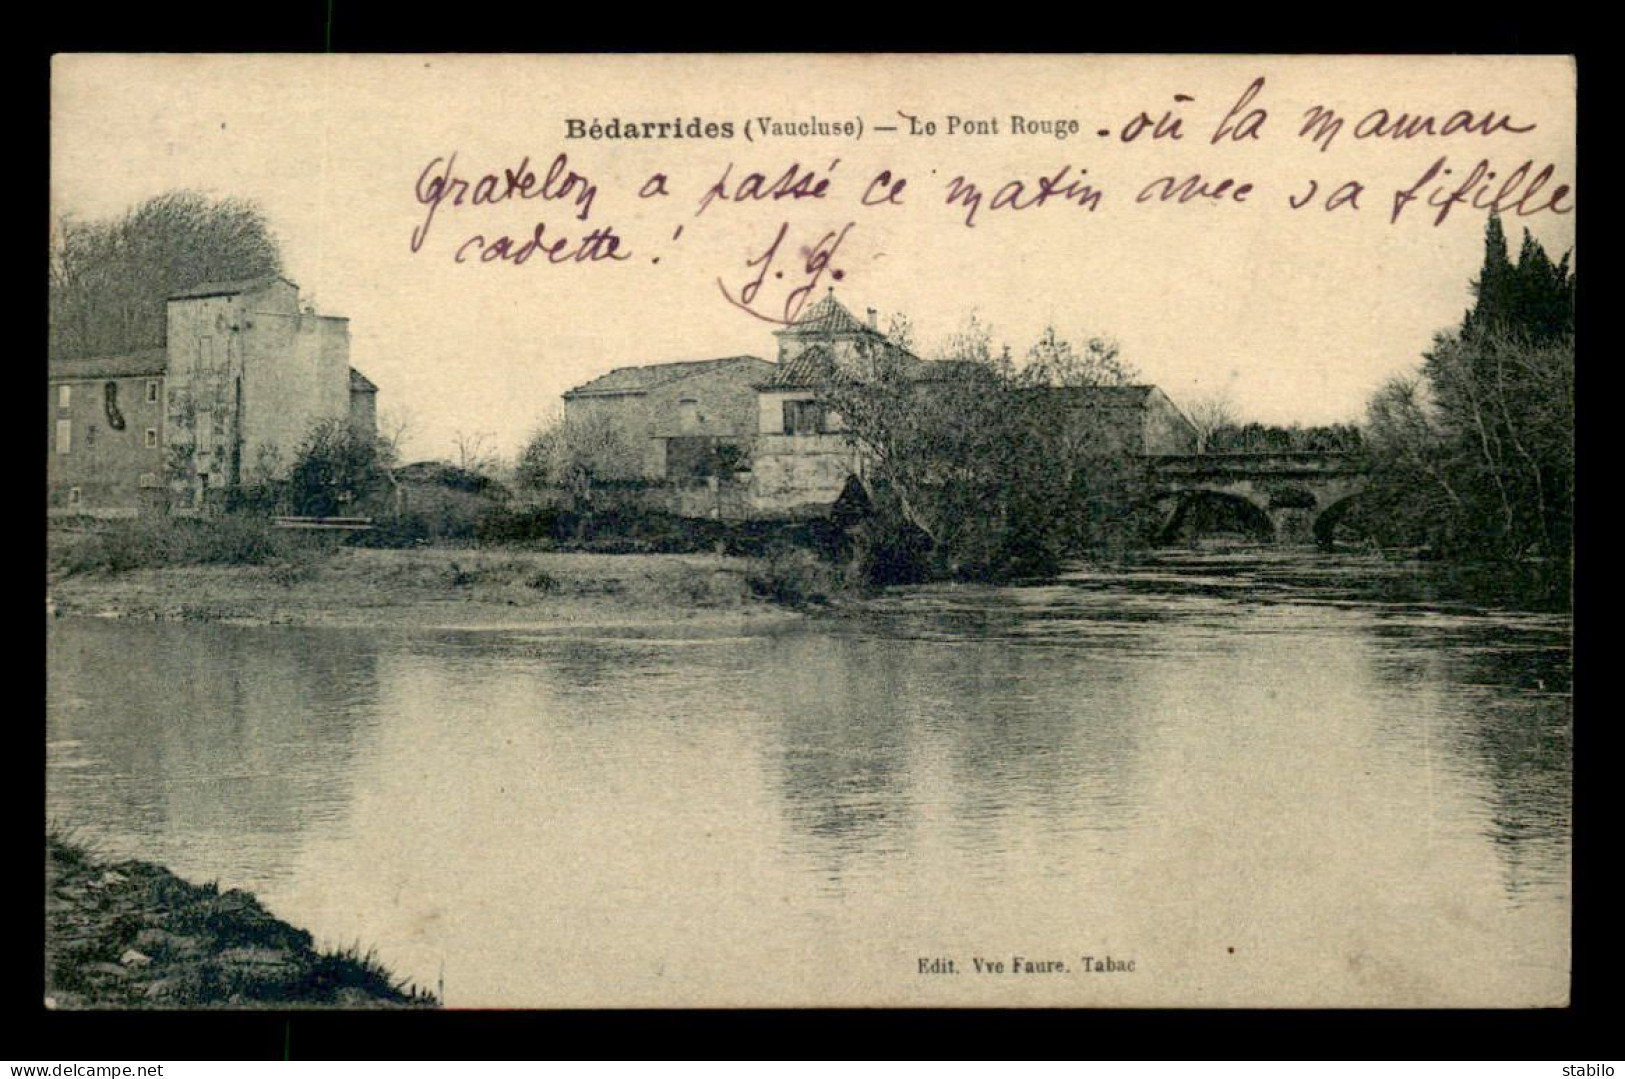 Bédarrides (Vaucluse) — Le Pont Rouge . où la maman
Gratelon a passé ce matin avec sa fifille
cadette ! J. G.
Edit. Vve Faure. Tabac
www.delcampe.net
stabilo